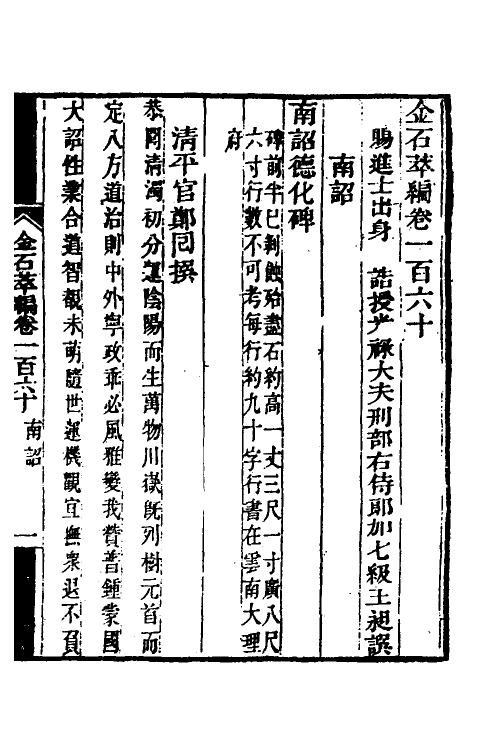 金石萃編卷一百六十
賜進士出身　誥授光祿大夫刑部右侍郎加七級王昶譔
南詔
南詔德化碑
碑前半已剝蝕殆盡石約高一丈三尺一寸廣八尺
六寸行數不可考每行約九十字行書在雲南大理
府
清平官鄭回撰
恭聞清濁初分運陰陽而生萬物川嶽既列樹元首而
定八方道治則中外寧政乖必風雅變我贊普鍾蒙國
大詔性業合道智觀未萌隨世運機觀宜無衆退不負
金石萃編卷一百六十　南詔　一